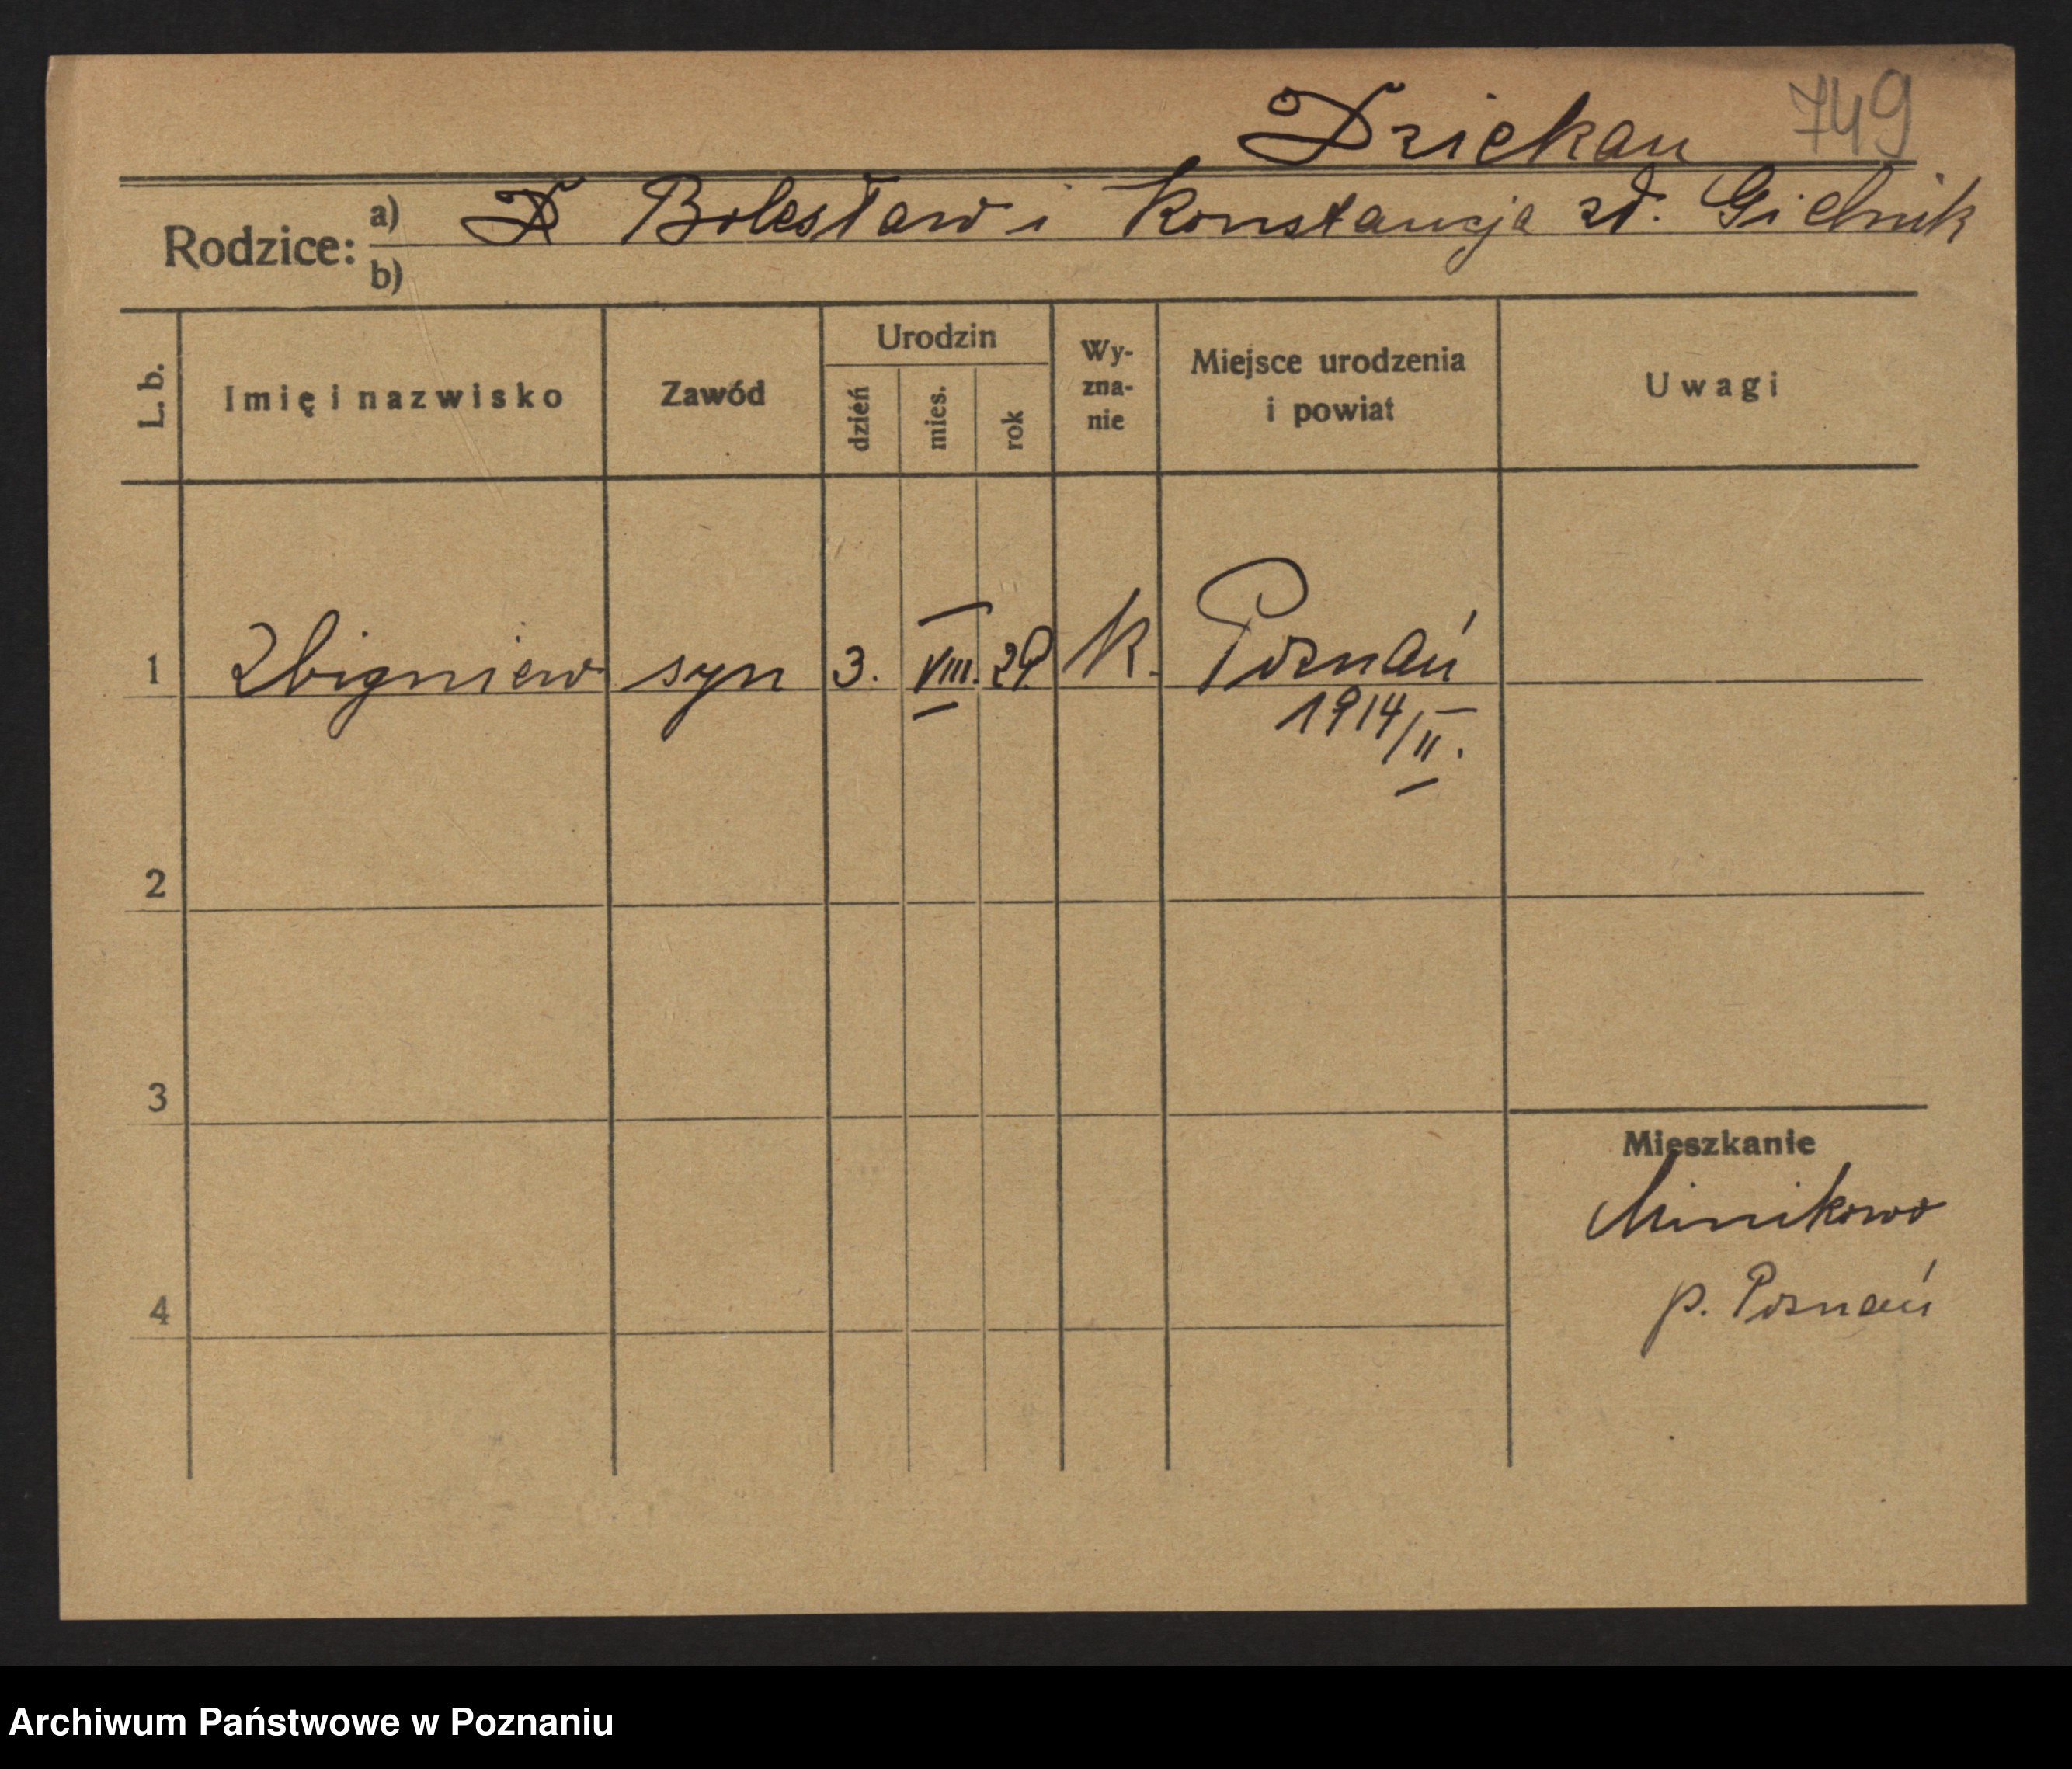 Dziekan 749
Rodzice: a) D Bolesław i Konstancja zd. Gielnik
b)
L. b. Imię i nazwisko Zawód Urodzin dzień mies. rok Wy-zna-nie Miejsce urodzenia i powiat Uwagi
1 Zbigniew syn 3. VIII. 29. K. Poznań
1914/II.
2
3
Mieszkanie
Minikowo
4 p. Poznań
Archiwum Państwowe w Poznaniu